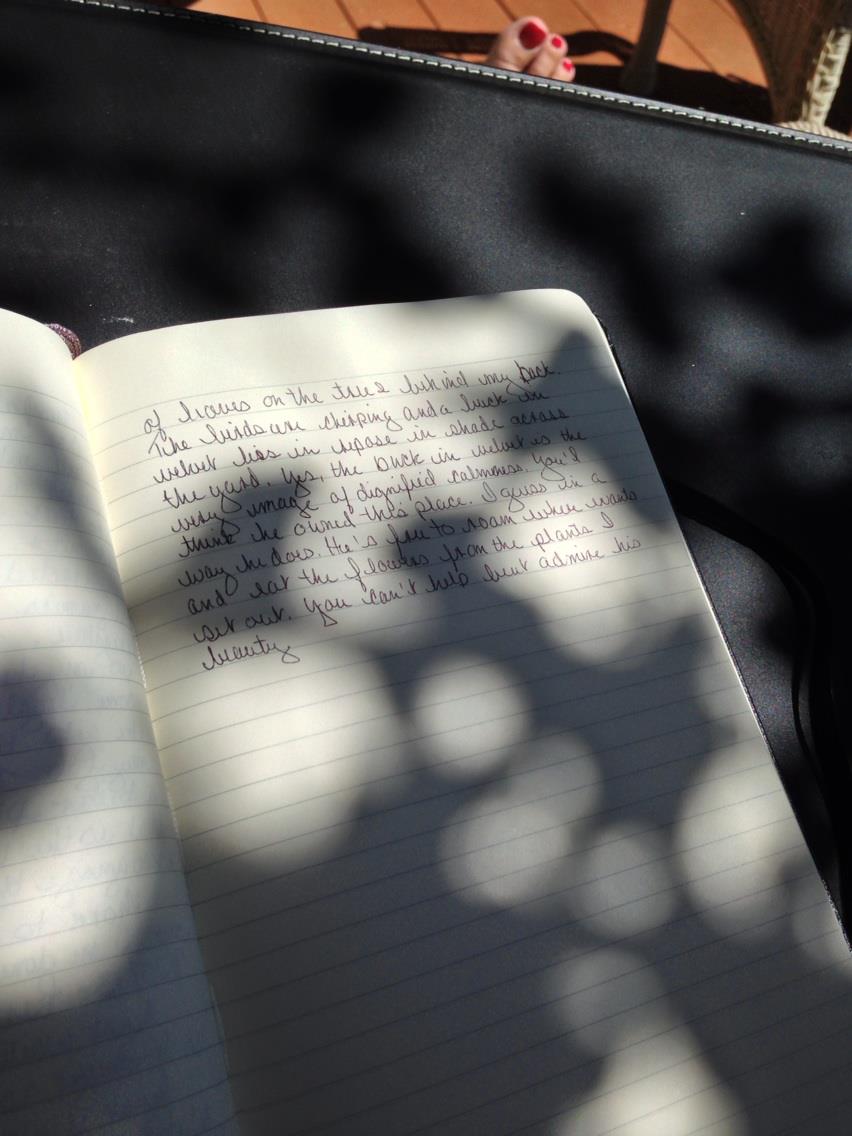 of leaves on the trees behind my back.
The birds are chirping and a buck in
velvet lies in repose in shade across
the yard. Yes, the buck in velvet is the
very image of dignified calmness. You'd
think he owned this place. I guess in a
way he does. He's free to roam where wants
and eat the flowers from the plants I
set out. You can't help but admire his
beauty